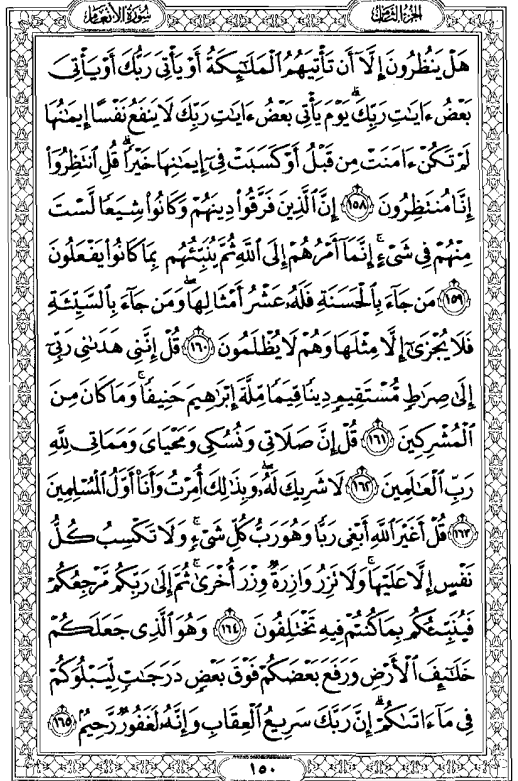 الجزء الثامن
سورة الأنعام
هَلْ يَنظُرُونَ إِلَّآ أَن تَأْتِيَهُمُ ٱلْمَلَٰٓئِكَةُ أَوْ يَأْتِىَ رَبُّكَ أَوْ يَأْتِىَ
بَعْضُ ءَايَٰتِ رَبِّكَ ۗ يَوْمَ يَأْتِى بَعْضُ ءَايَٰتِ رَبِّكَ لَا يَنفَعُ نَفْسًا إِيمَٰنُهَا
لَمْ تَكُنْ ءَامَنَتْ مِن قَبْلُ أَوْ كَسَبَتْ فِىٓ إِيمَٰنِهَا خَيْرًا ۗ قُلِ ٱنتَظِرُوٓا۟
إِنَّا مُنتَظِرُونَ ﴿١٥٨﴾ إِنَّ ٱلَّذِينَ فَرَّقُوا۟ دِينَهُمْ وَكَانُوا۟ شِيَعًا لَّسْتَ
مِنْهُمْ فِى شَىْءٍ ۚ إِنَّمَآ أَمْرُهُمْ إِلَى ٱللَّهِ ثُمَّ يُنَبِّئُهُم بِمَا كَانُوا۟ يَفْعَلُونَ
﴿١٥٩﴾ مَن جَآءَ بِٱلْحَسَنَةِ فَلَهُۥ عَشْرُ أَمْثَالِهَا ۖ وَمَن جَآءَ بِٱلسَّيِّئَةِ
فَلَا يُجْزَىٰٓ إِلَّا مِثْلَهَا وَهُمْ لَا يُظْلَمُونَ ﴿١٦٠﴾ قُلْ إِنَّنِى هَدَىٰنِى رَبِّىٓ
إِلَىٰ صِرَٰطٍ مُّسْتَقِيمٍ دِينًا قِيَمًا مِّلَّةَ إِبْرَٰهِيمَ حَنِيفًا ۚ وَمَا كَانَ مِنَ
ٱلْمُشْرِكِينَ ﴿١٦١﴾ قُلْ إِنَّ صَلَاتِى وَنُسُكِى وَمَحْيَاىَ وَمَمَاتِى لِلَّهِ
رَبِّ ٱلْعَٰلَمِينَ ﴿١٦٢﴾ لَا شَرِيكَ لَهُۥ ۖ وَبِذَٰلِكَ أُمِرْتُ وَأَنَا۠ أَوَّلُ ٱلْمُسْلِمِينَ
﴿١٦٣﴾ قُلْ أَغَيْرَ ٱللَّهِ أَبْغِى رَبًّا وَهُوَ رَبُّ كُلِّ شَىْءٍ ۚ وَلَا تَكْسِبُ كُلُّ
نَفْسٍ إِلَّا عَلَيْهَا ۚ وَلَا تَزِرُ وَازِرَةٌ وِزْرَ أُخْرَىٰ ۚ ثُمَّ إِلَىٰ رَبِّكُم مَّرْجِعُكُمْ
فَيُنَبِّئُكُم بِمَا كُنتُمْ فِيهِ تَخْتَلِفُونَ ﴿١٦٤﴾ وَهُوَ ٱلَّذِى جَعَلَكُمْ
خَلَٰٓئِفَ ٱلْأَرْضِ وَرَفَعَ بَعْضَكُمْ فَوْقَ بَعْضٍ دَرَجَٰتٍ لِّيَبْلُوَكُمْ
فِى مَآ ءَاتَىٰكُمْ ۗ إِنَّ رَبَّكَ سَرِيعُ ٱلْعِقَابِ وَإِنَّهُۥ لَغَفُورٌ رَّحِيمٌۢ ﴿١٦٥﴾
١٥٠